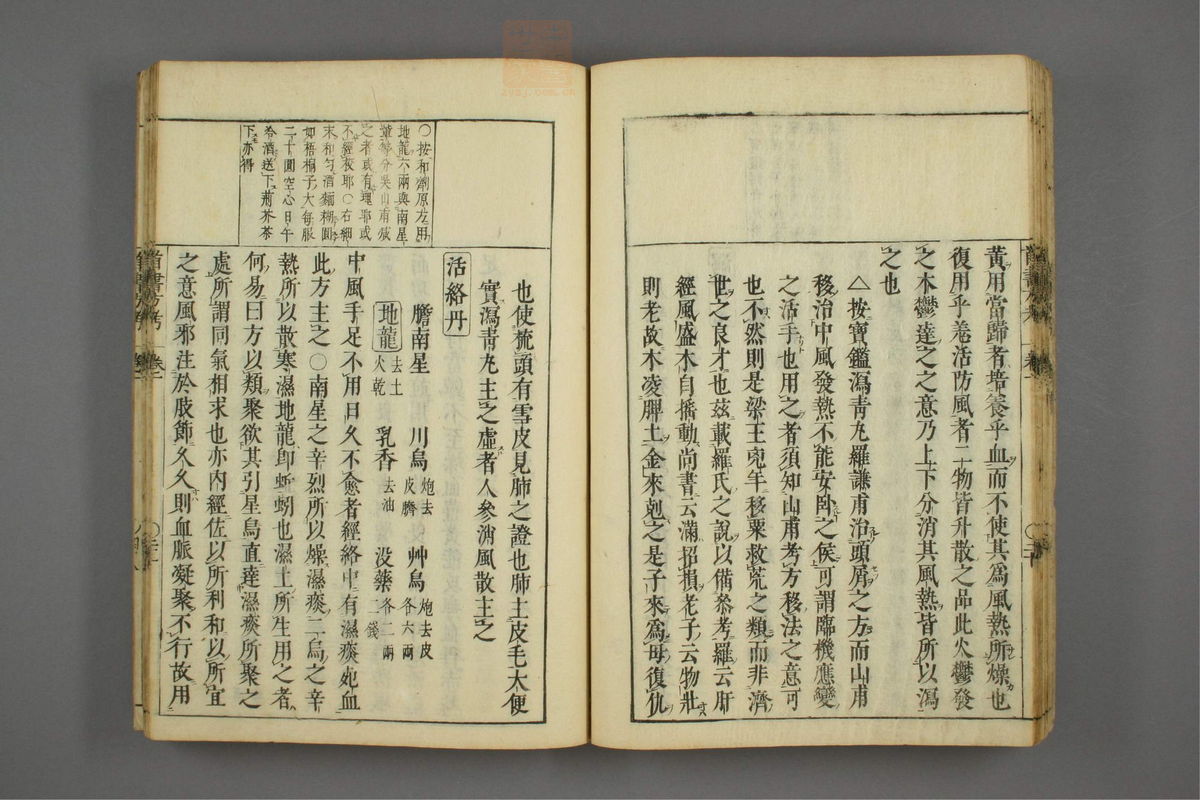 黃用當歸者培養乎血而不使其爲風熱所燥也
復用乎羗活防風者二物皆升散之品此火鬱發
之木鬱達之之意乃上下分消其風熱皆所以瀉
之也
△按寶鑑瀉靑丸羅謙甫治頭屑之方而山甫
移治中風發熱不能安臥之候可謂臨機應變
之活手也用之者須知山甫考方移法之意可
也不然則是梁王兇年移粟救荒之類而非濟
世之良才也玆載羅氏之說以備叅考羅云肝
經風盛木自搖動尚書云滿招損老子云物壯
則老故木凌脾土金來剋之是子來爲母復仇
也使梳頭有雪皮見肺之證也肺主皮毛大便
實瀉靑丸主之虛者人參消風散主之
活絡丹
膽南星 川烏炮去皮臍 艸烏炮去皮各六兩
地龍去土火乾 乳香去油 没藥各二兩二錢
中風手足不用日久不愈者經絡中有濕痰死血
此方主之〇南星之辛烈所以燥濕痰二烏之辛
熱所以散寒濕地龍卽蚯蚓也濕土所生用之者
何易曰方以類聚欲其引星烏直達濕痰所聚之
處所謂同氣相求也亦內經佐以所利和以所宜
之意風邪注於肢節久久則血脈凝聚不行故用
〇按和劑原方用
地龍六兩與南星
等分吳山甫
之者或有理耶或
不經校耶〇右細
末和勻酒麵糊圓
如梧桐子大每服
二十圓空心日午
冷酒送下荊芥茶
下亦得